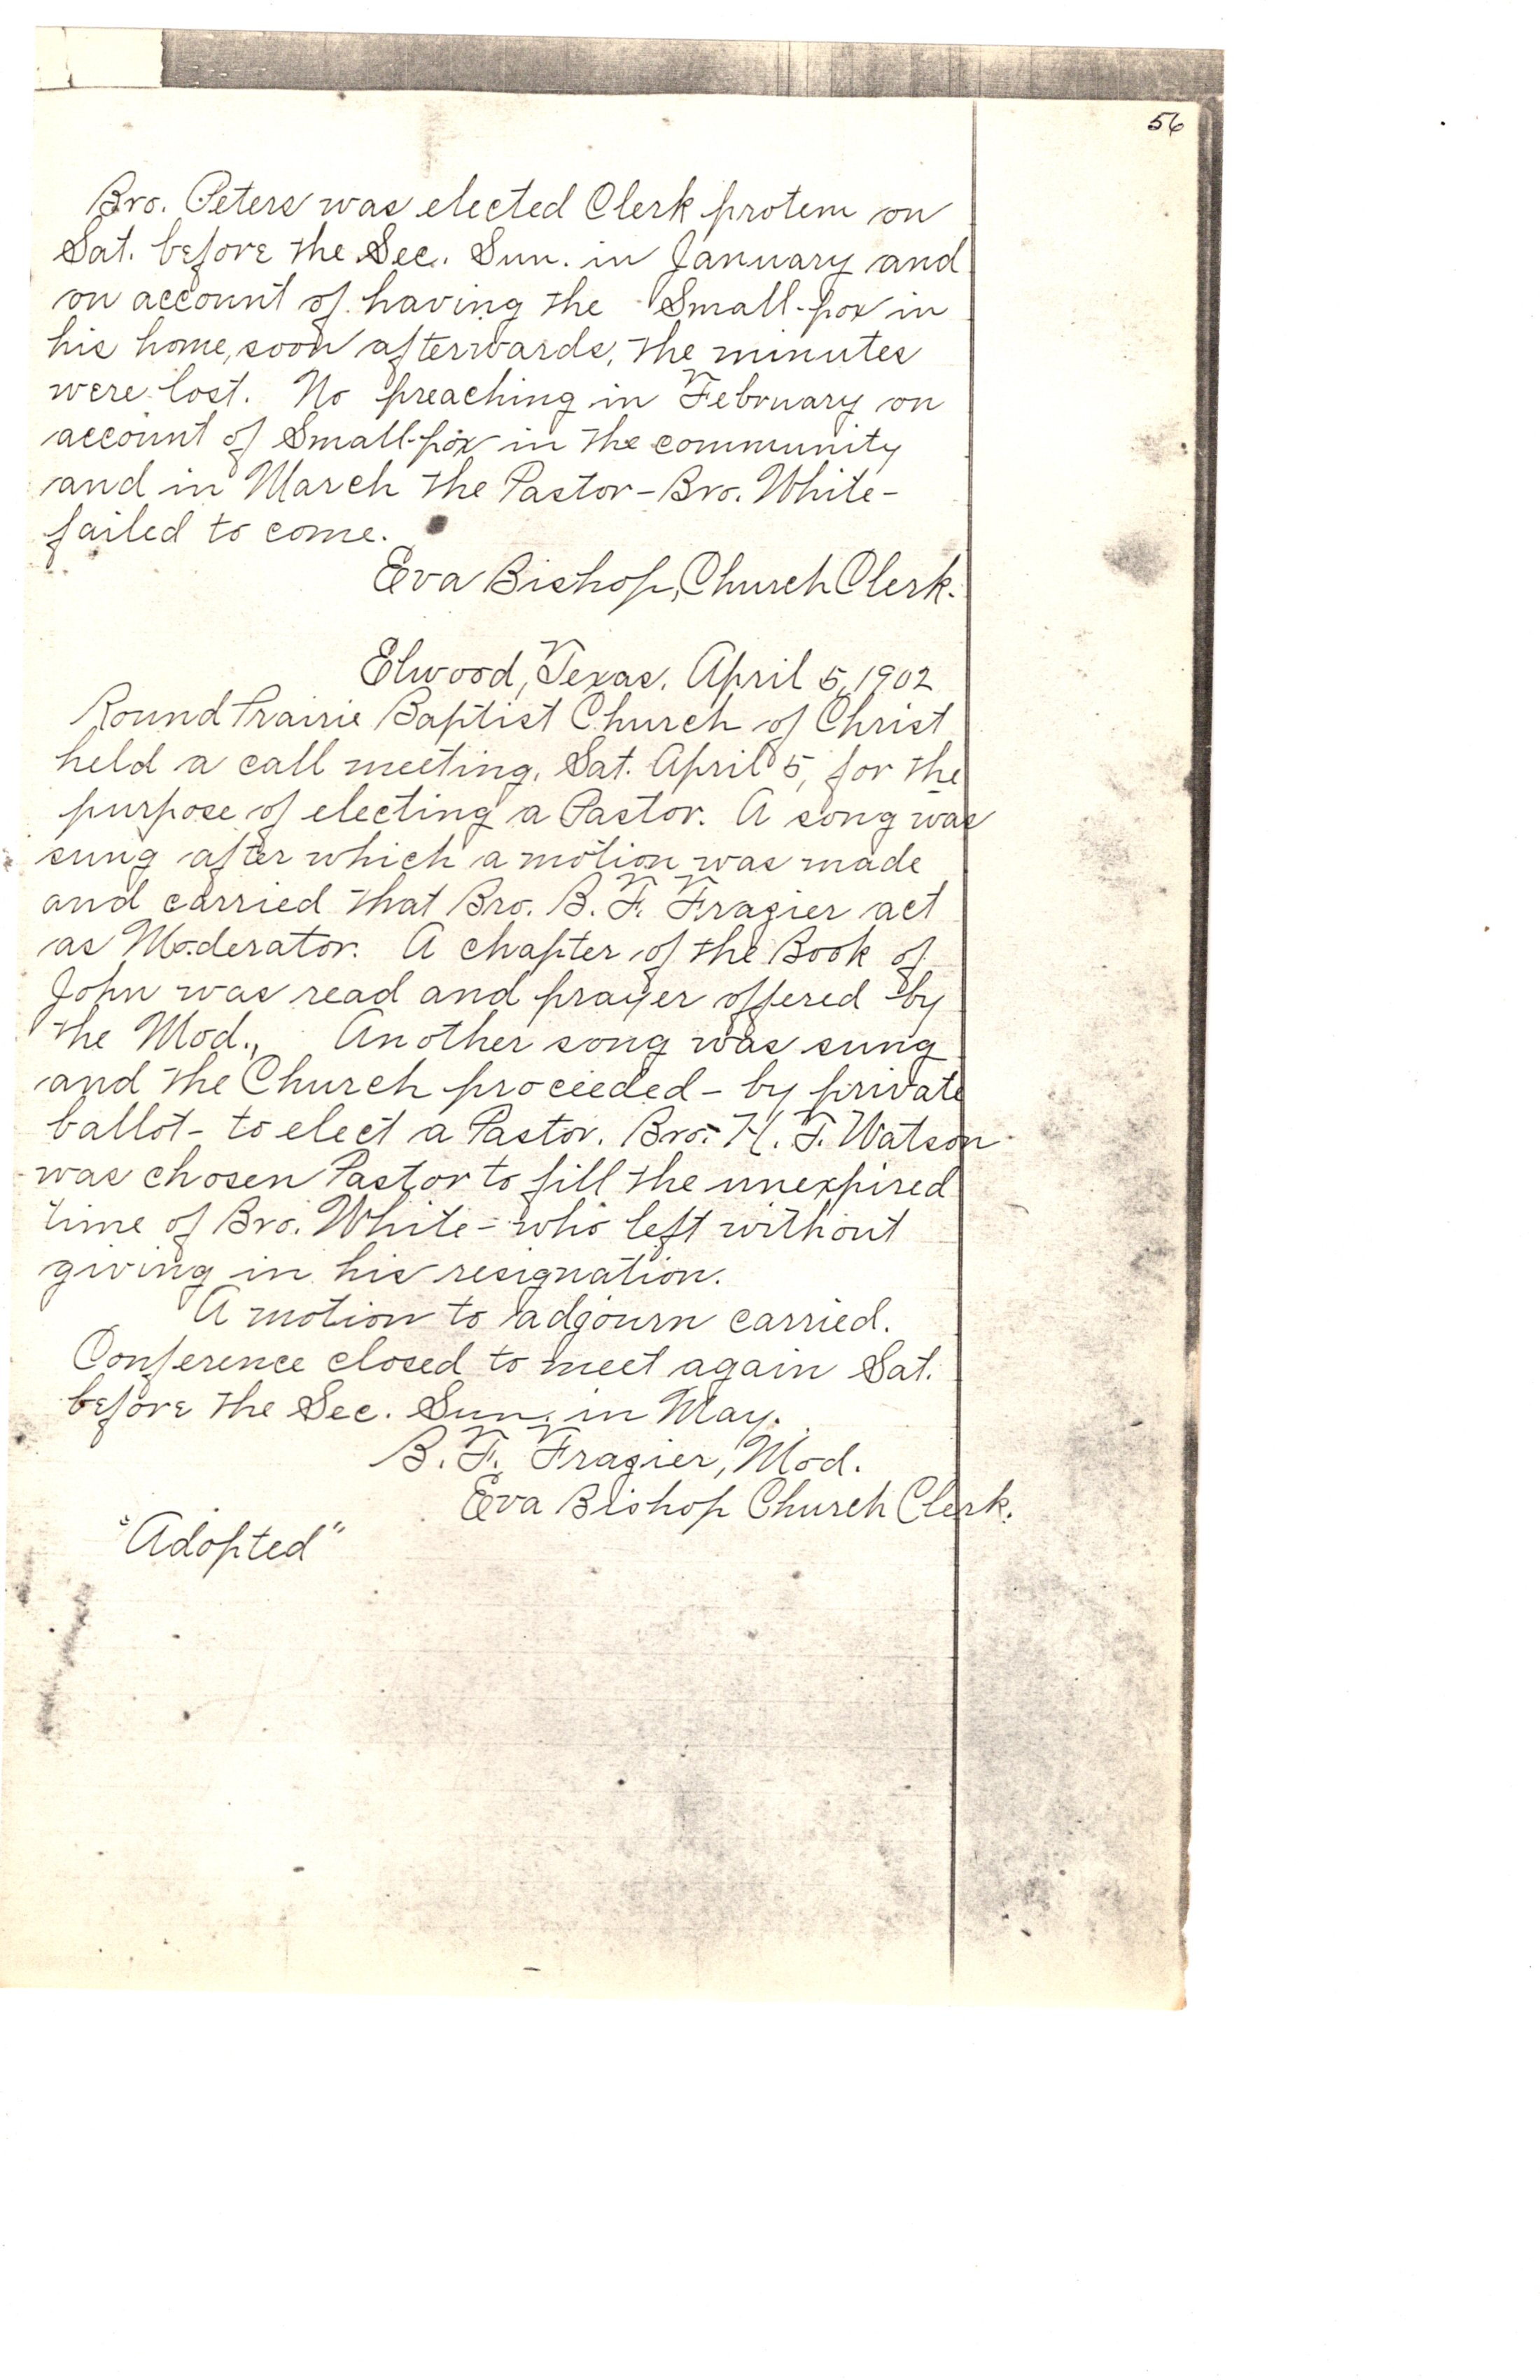 56
Bro. Peters was elected Clerk protem on
Sat. before the Sec. Sun. in January and
on account of having the Small-pox in
his home, soon afterwards, the minutes
were lost. No preaching in February on
account of Small-pox in the community
and in March the Pastor - Bro. White -
failed to come.
Eva Bishop, Church Clerk.
Elwood, Texas. April 5, 1902
Round Prairie Baptist Church of Christ
held a call meeting, Sat. April 5, for the
purpose of electing a Pastor. A song was
sung after which a motion was made
and carried that Bro. B. F. Frazier act
as Moderator. A chapter of the Book of
John was read and prayer offered by
the Mod., Another song was sung
and the Church proceeded - by private
ballot - to elect a Pastor. Bro. H. T. Watson
was chosen Pastor to fill the unexpired
time of Bro. White - who left without
giving in his resignation.
A motion to adjourn carried.
Conference closed to meet again Sat.
before the Sec. Sun. in May.
B. F. Frazier, Mod.
Eva Bishop Church Clerk.
"Adopted"